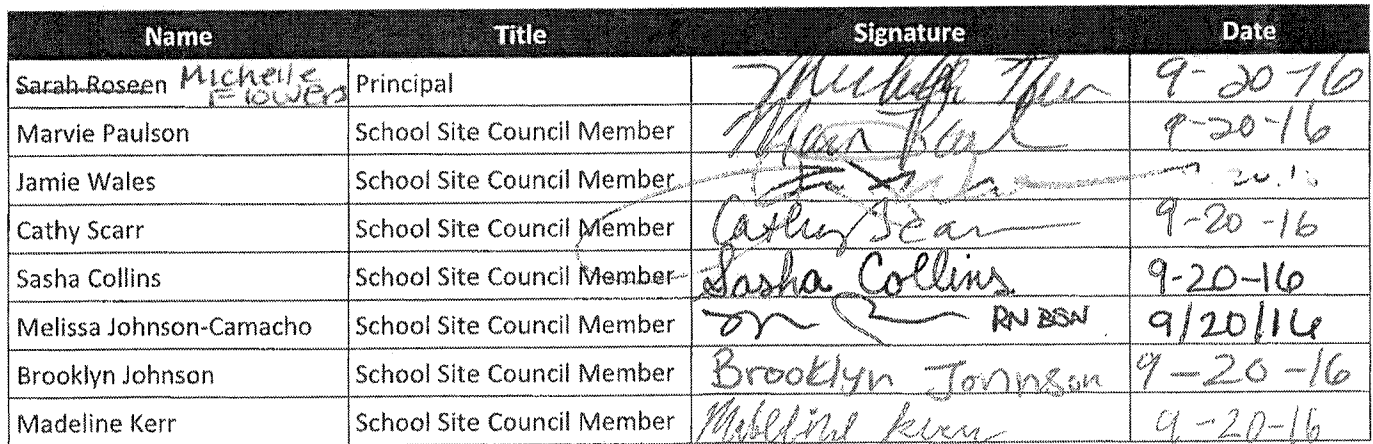 Name Title Signature Date
Sarah Roseen Michelle Flowers Principal 9-20-16
Marvie Paulson School Site Council Member 9-20-16
Jamie Wales School Site Council Member
Cathy Scarr School Site Council Member Cathy Scarr 9-20-16
Sasha Collins School Site Council Member Sasha Collins 9-20-16
Melissa Johnson-Camacho School Site Council Member RN BSN 9/20/16
Brooklyn Johnson School Site Council Member Brooklyn Johnson 9-20-16
Madeline Kerr School Site Council Member Madeline Kerr 9-20-16